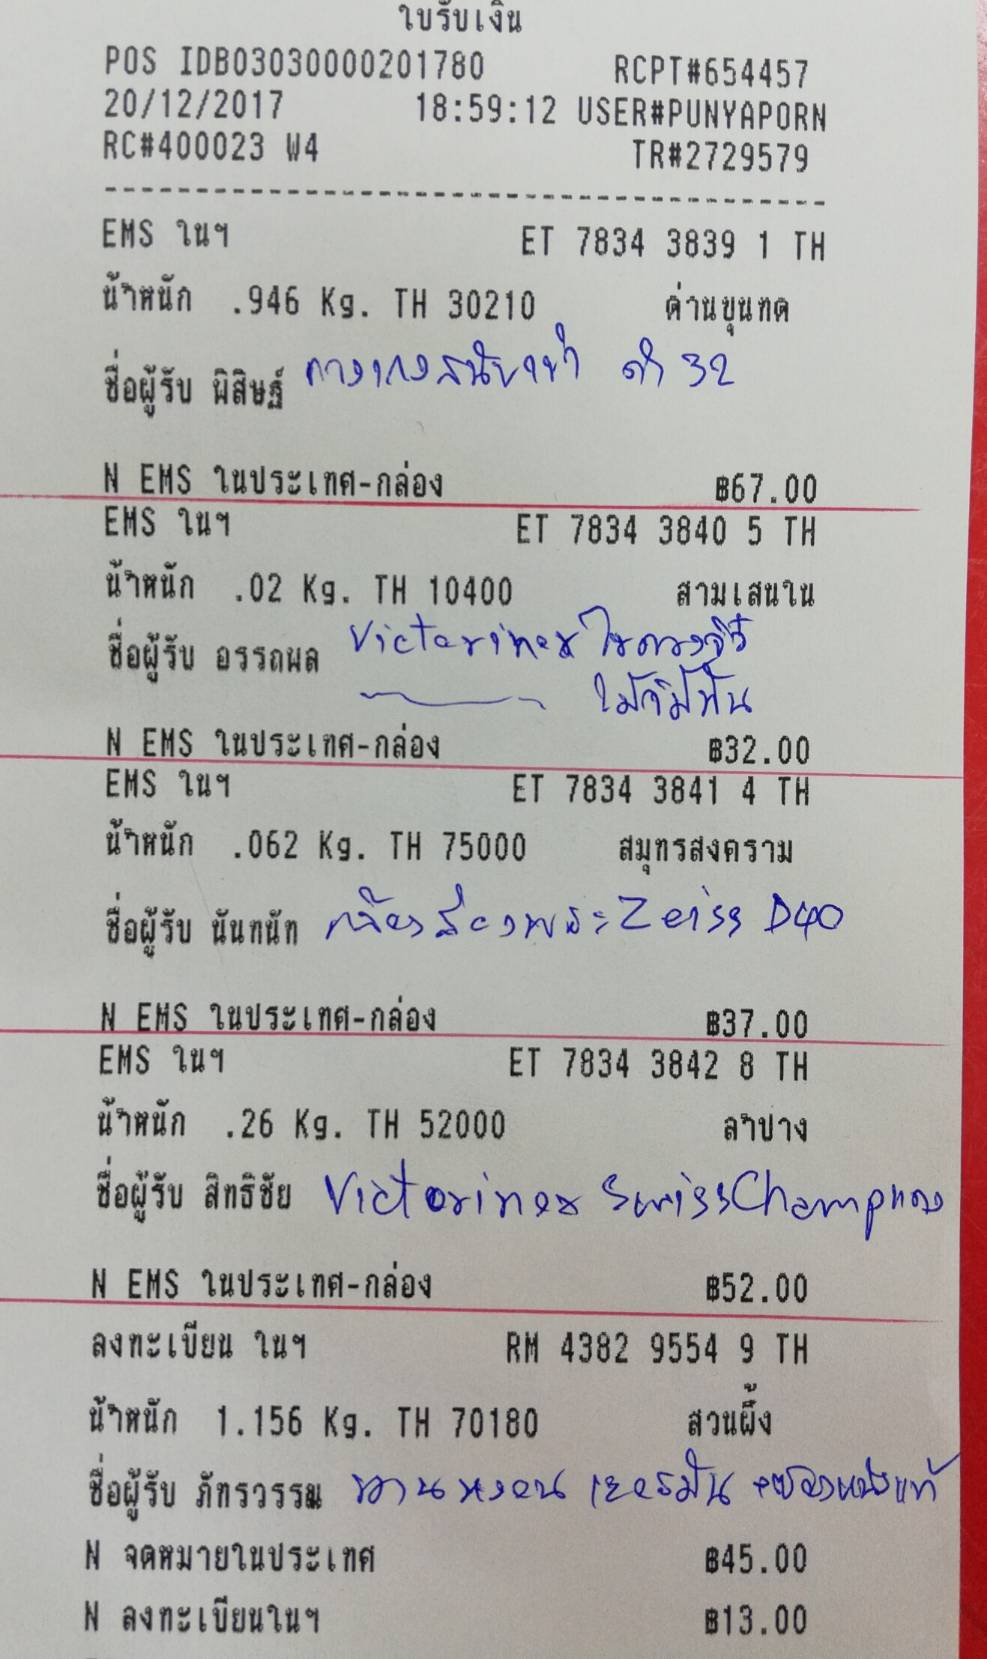 ใบรับเงิน
POS IDB03030000201780 RCPT#654457
20/12/2017 18:59:12 USER#PUNYAPORN
RC#400023 W4 TR#2729579
EMS ในฯ ET 7834 3839 1 TH
น้ำหนัก .946 Kg. TH 30210 ด่านขุนทด
ชื่อผู้รับ พิสิษฐ์ กางเกง ดำ 32
N EMS ในประเทศ-กล่อง ฿67.00
EMS ในฯ ET 7834 3840 5 TH
น้ำหนัก .02 Kg. TH 10400 สามเสนใน
ชื่อผู้รับ อรรถผล Victorinox ไขควงจิ๋ว
ไม้จิ้มฟัน
N EMS ในประเทศ-กล่อง ฿32.00
EMS ในฯ ET 7834 3841 4 TH
น้ำหนัก .062 Kg. TH 75000 สมุทรสงคราม
ชื่อผู้รับ นันทนัท กล้องส่องพระ Zeiss D40
N EMS ในประเทศ-กล่อง ฿37.00
EMS ในฯ ET 7834 3842 8 TH
น้ำหนัก .26 Kg. TH 52000 ลำปาง
ชื่อผู้รับ สิทธิชัย Victorinox SwissChamp แดง
N EMS ในประเทศ-กล่อง ฿52.00
ลงทะเบียน ในฯ RM 4382 9554 9 TH
น้ำหนัก 1.156 Kg. TH 70180 สวนผึ้ง
ชื่อผู้รับ ภัทรวรรณ ขวานหงอน เยอรมัน +ซองหนังแท้
N จดหมายในประเทศ ฿45.00
N ลงทะเบียนในฯ ฿13.00